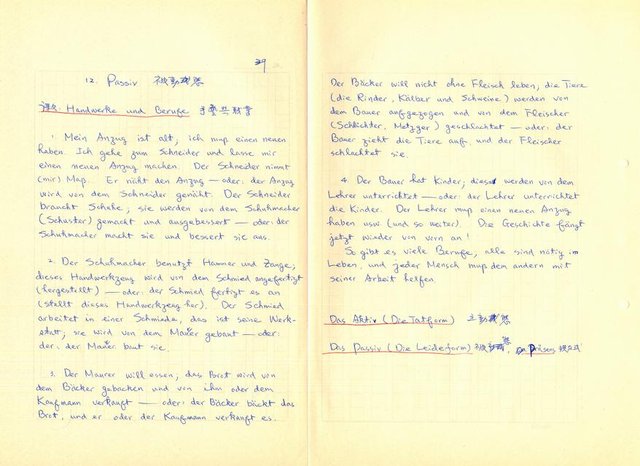 29
12. Passiv 被動狀態
課文. Handwerke und Berufe 手藝與職業
1 Mein Anzug ist alt, ich muß einen neuen
haben. Ich gehe zum Schneider und lasse mir
einen neuen Anzug machen. Der Schneider nimmt
(mir) Maß. Er näht den Anzug — oder: der Anzug
wird von dem Schneider genäht. Der Schneider
braucht Schuhe; sie werden von dem Schuhmacher
(Schuster) gemacht und ausgebessert — oder: der
Schuhmacher macht sie und bessert sie aus.
2. Der Schuhmacher benutzt Hammer und Zange,
dieses Handwerkzeug wird von dem Schmied angefertigt
(hergestellt) — oder: der Schmied fertigt es an
(stellt dieses Handwerkzeug her). Der Schmied
arbeitet in einer Schmiede, das ist seine Werk-
statt, sie wird von dem Maurer gebaut — oder:
der Maurer baut sie.
3. Der Maurer will essen, das Brot wird von
dem Bäcker gebacken und von ihm oder dem
Kaufmann verkauft — oder: der Bäcker bäckt das
Brot, und er oder der Kaufmann verkauft es.
Der Bäcker will nicht ohne Fleisch leben, die Tiere
(die Rinder, Kälber und Schweine) werden von
dem Bauer aufgezogen und von dem Fleischer
(Schlächter, Metzger) geschlachtet — oder: der
Bauer zieht die Tiere auf und der Fleischer
schlachtet sie.
4. Der Bauer hat Kinder, diese werden von dem
Lehrer unterrichtet — oder: der Lehrer unterrichtet
die Kinder. Der Lehrer muß einen neuen Anzug
haben usw (und so weiter). Die Geschichte fängt
jetzt wieder von vorn an!
So gibt es viele Berufe, alle sind nötig im
Leben, und jeder Mensch muß den andern mit
seiner Arbeit helfen.
Das Aktiv (Die Tatform) 主動狀態
Das Passiv (Die Leideform) 被動狀態, Präsens 現在式